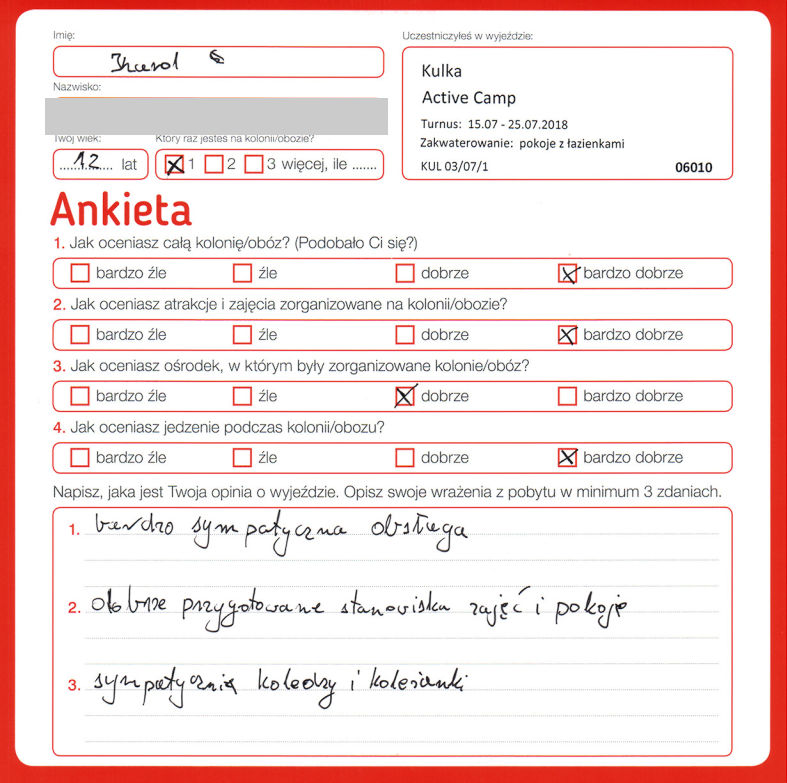 Imię:
Karol
Nazwisko:
Uczestniczyłeś w wyjeździe:
Kulka
Active Camp
Turnus: 15.07 - 25.07.2018
Zakwaterowanie: pokoje z łazienkami
KUL 03/07/1 06010
Twój wiek:
12 lat
Który raz jesteś na kolonii/obozie?
1 2 3 więcej, ile .......
Ankieta
1. Jak oceniasz całą kolonię/obóz? (Podobało Ci się?)
bardzo źle źle dobrze bardzo dobrze
2. Jak oceniasz atrakcje i zajęcia zorganizowane na kolonii/obozie?
bardzo źle źle dobrze bardzo dobrze
3. Jak oceniasz ośrodek, w którym były zorganizowane kolonie/obóz?
bardzo źle źle dobrze bardzo dobrze
4. Jak oceniasz jedzenie podczas kolonii/obozu?
bardzo źle źle dobrze bardzo dobrze
Napisz, jaka jest Twoja opinia o wyjeździe. Opisz swoje wrażenia z pobytu w minimum 3 zdaniach.
1. bardzo sympatyczna obsługa
2. dobrze przygotowane stanowiska zajęć i pokoje
3. sympatycznia koledzy i koleżanki